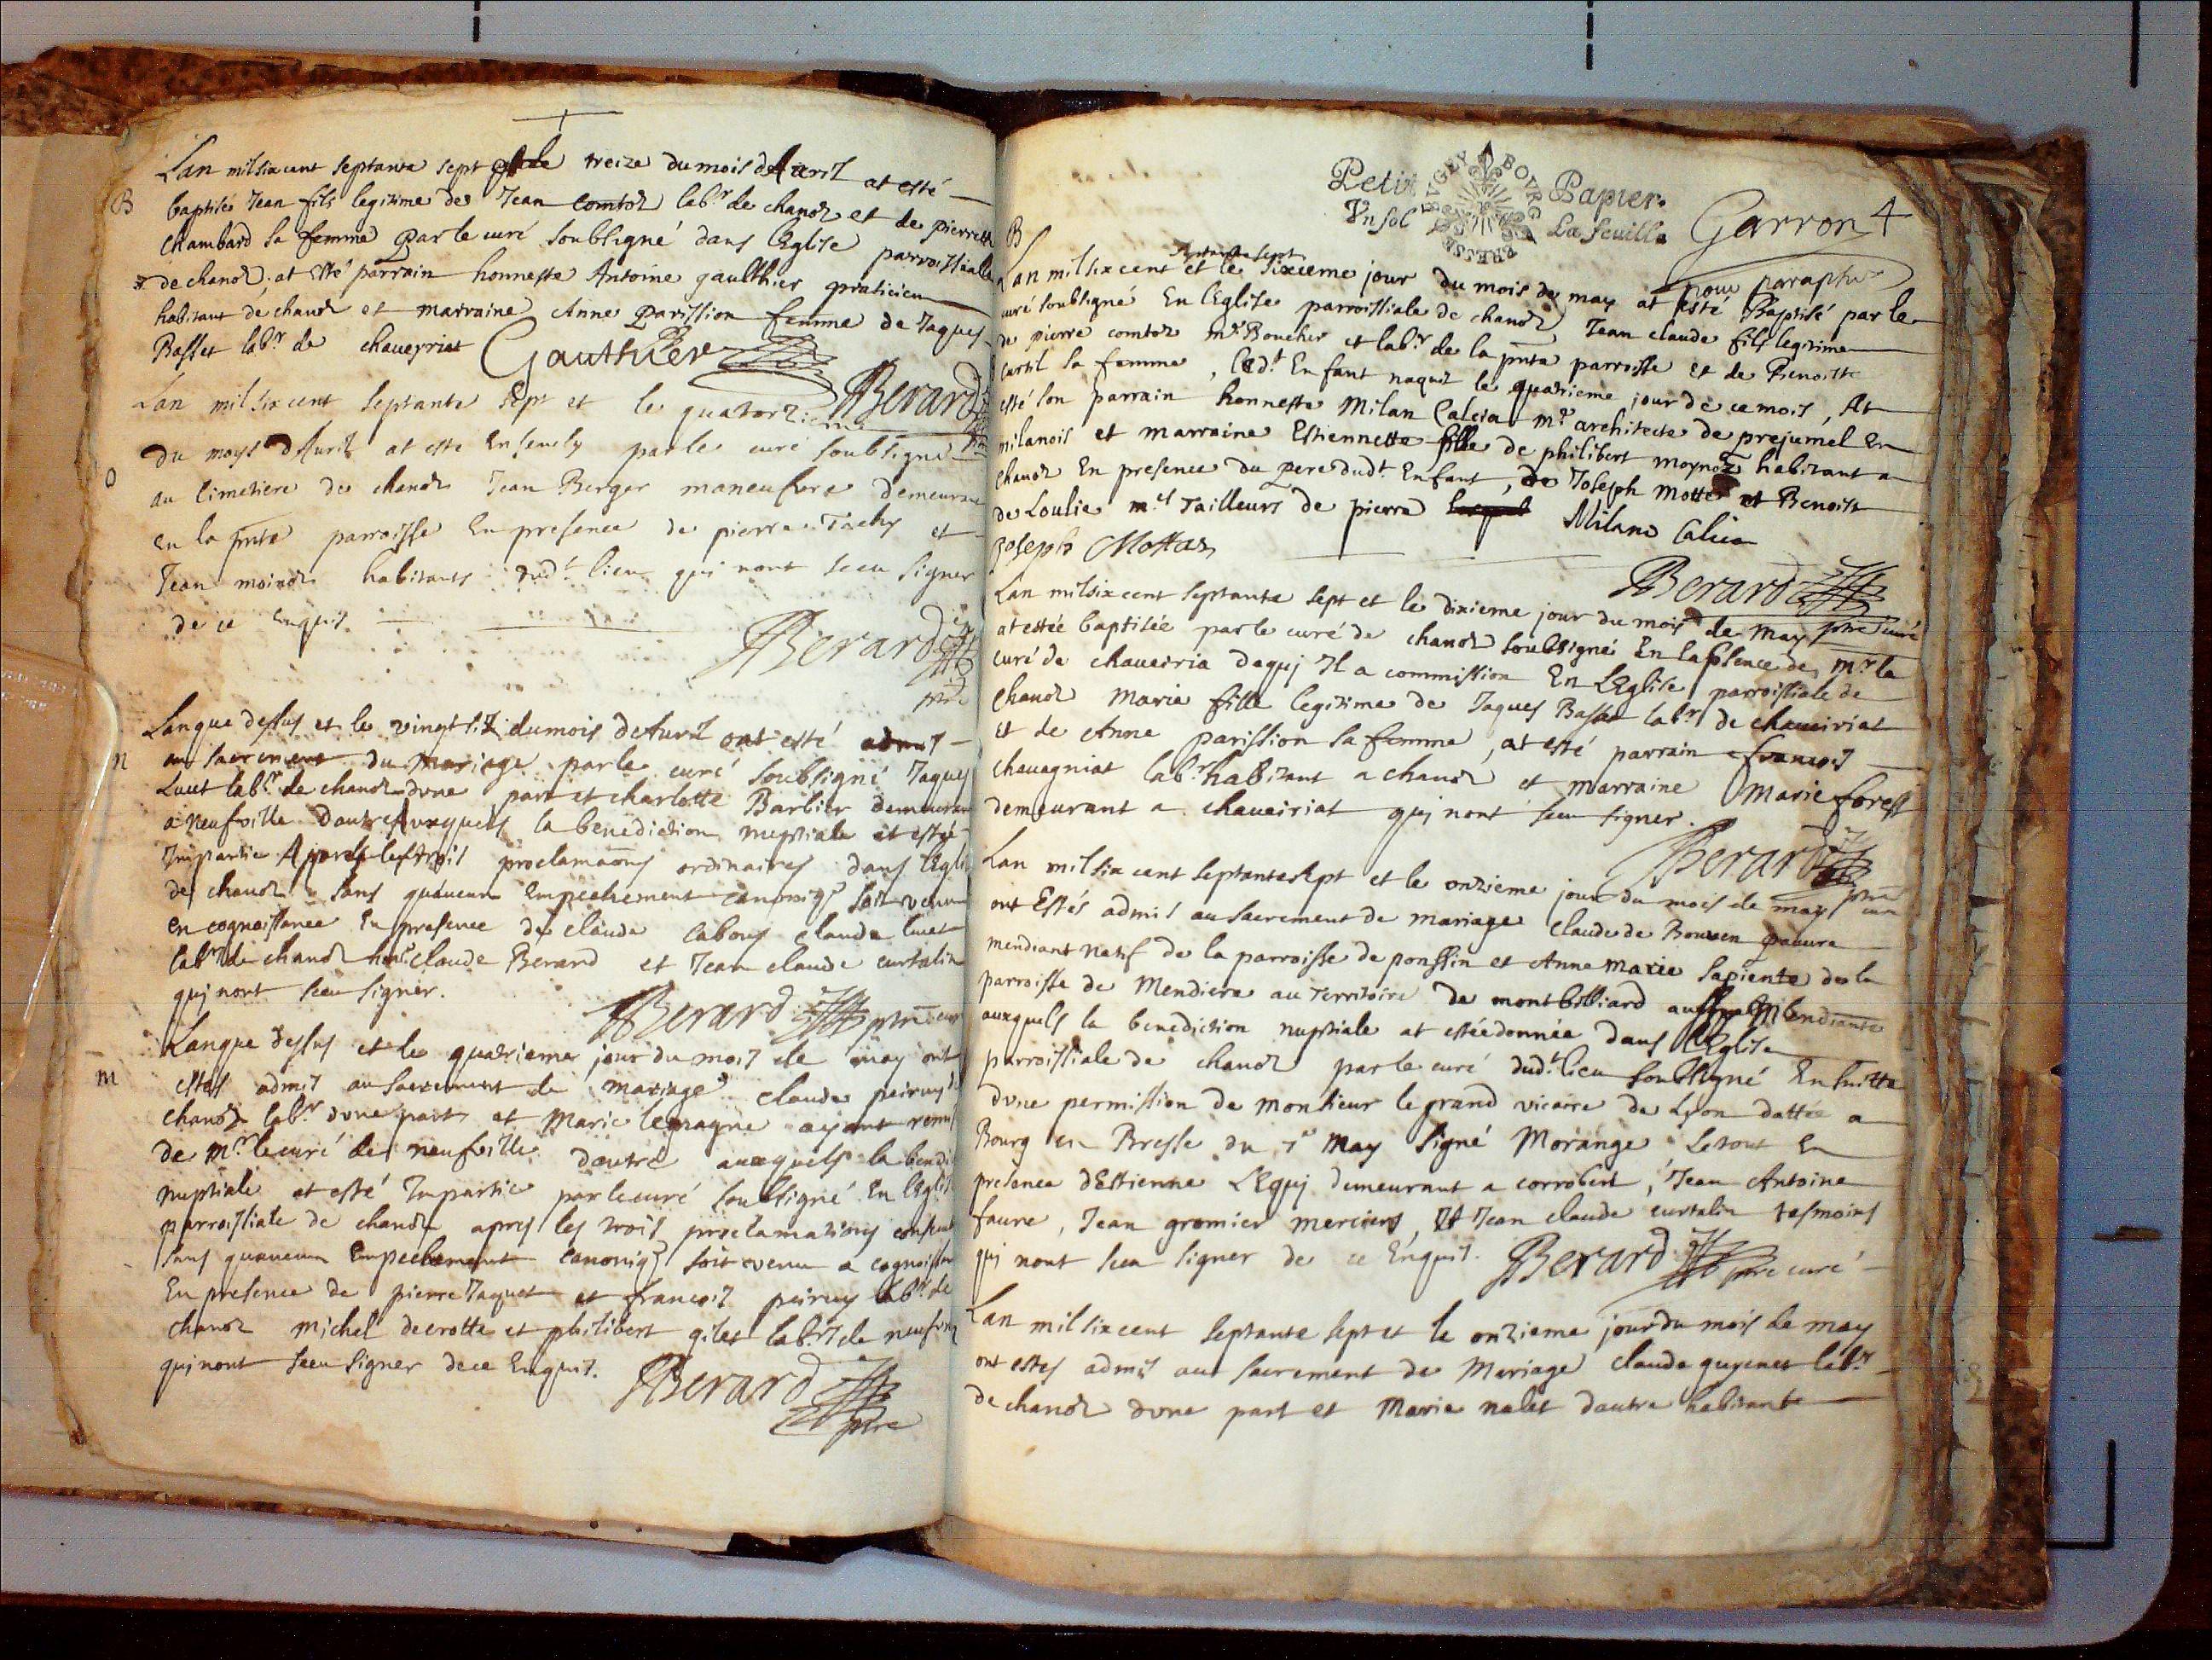 Lan mil six cent septante sept treize du mois dAuril at esté
B
baptisé Jean fils legitime de Jean comtoz labr. de chanoz et de pierrette
chambard sa femme par le curé soubsigné dans lEglise parroissialle
de chanoz. at esté parrain honneste Antoine gaulthier praticien
habitant de chanoz et marraine Anne Parission femme de Jaques
Basset labr. de chaueyriat Gauthier
Berard
Lan mil six cent septante sept et le quatorzieme
du moys dAuril at esté Enseuely par le curé soubsigné
O
au Cimetiere de chanoz Jean Berger maneuure demeurant
en la pnte parroisse En presence de pierre Tachy et
Jean moinoz habitants dudt. lieu qui nont sceu signer
de ce Enquis.
Berard
Lanque dessus et le vingt six du mois dAuril ont esté admis
M
au sacrement du mariage par le curé soubsigné Jaques
Luuet labr. de chanoz dvne part et charlotte Barbier demeurant
a neufville dautre Auxquels la benediction nuptiale at esté
Impartie Apres les trois proclamaons ordinaires dans lEglise
de chanoz sans quaucun Empechement canoniq soit venu
en cognoissance En presence de claude labous claude luuet
labr. de chanoz hon. claude Berard et Jean claude curtalin
qui nont sceu signer.
Berard ptre curé
Lanque dessus et le quatrieme jour du mois de may ont
M
estés admis au sacrement de mariage claude peiruy de
chanoz labr. dvne part et Marie lemagne ayant remis
de Mr. le curé de neufville dautre auxquels la benediction
nuptiale at esté Impartie par le curé soubsigné En lEglise
parroissiale de chanoz apres les trois proclamations
sans quaucun Empechement canoniq soit venu a cognoissance
En presence de pierre Jaquet et francois peiruy labr. de
chanoz michel decrotte et philibert gilet labr. de neufville
qui nont sceu signer de ce Enquis.
Berard
ptre
Petit Papier
BVGEY BOVRG BRESSE
Vn sol La feuille
Garron 4
pour paraphe
B
septante sept
Lan mil six cent et le sixieme jour du mois de may at esté Baptisé par le
curé soubsigné En lEglise parroissiale de chanoz Jean claude fils legitime
de pierre comtoz mr. Boucher et labr. de la pnte parroisse et de Benoiste
curtil sa femme, ledt. Enfant naquit le quatrieme jour de ce mois, At
esté son parrain honneste Milan Calcia mr. architecte de prejumel En
milanois et marraine Estiennette fille de philibert moynoz habitant a
chanoz En presence du pere dudt. Enfant, de Joseph Motte et Benoist
de Loulie mes. Tailleurs de pierre Milano Calcia
Joseph Mottas
Berard
ptre curé
Lan mil six cent septante sept et le dixieme jour du mois de may
at estée baptisée par le curé de chanoz soubsigné En labsence de mr. le
curé de chaueiria dequj Il a commission En LEglise parroissiale de
chanoz Marie fille legitime de Jaques Basset labr. de chaueiriat
et de Anne parission sa femme, at esté parrain francois
chauagniat labr. habitant a chanoz et marraine Marie forest
demeurant a chaueiriat qui nont sceu signer.
Berard
ptre curé
Lan mil six cent septante sept et le onzieme jour du mois de may
ont Estés admis au sacrement de mariage Claude de Bouuen pauure
mendiant natif de la parroisse de ponssin et Anne Marie Sapiente de la
parroisse de Mendiere au Territoire de montbilliard aussy Mendiante
auxquels la benediction nuptiale at estée donnée dans lEglise
parroissiale de chanoz par le curé dudt. lieu soubsigné Ensuitte
dvne permission de monsieur le grand vicaire de Lyon dattée a
Bourg en Bresse du 7e may signé Morange. Le tout En
presence dEstienne LEquj demeurant a corrobert, Jean Antoine
faure, Jean gromier merciers, Et Jean claude curtalin tesmoins
qui nont sceu signer de ce Enquis. Berard ptre curé
Lan mil six cent septante sept et le onzieme jour du mois de may
ont estes admis au sacrement de Mariage claude guyenet labr.
de chanoz dvne part et Marie nalet dautre habitante